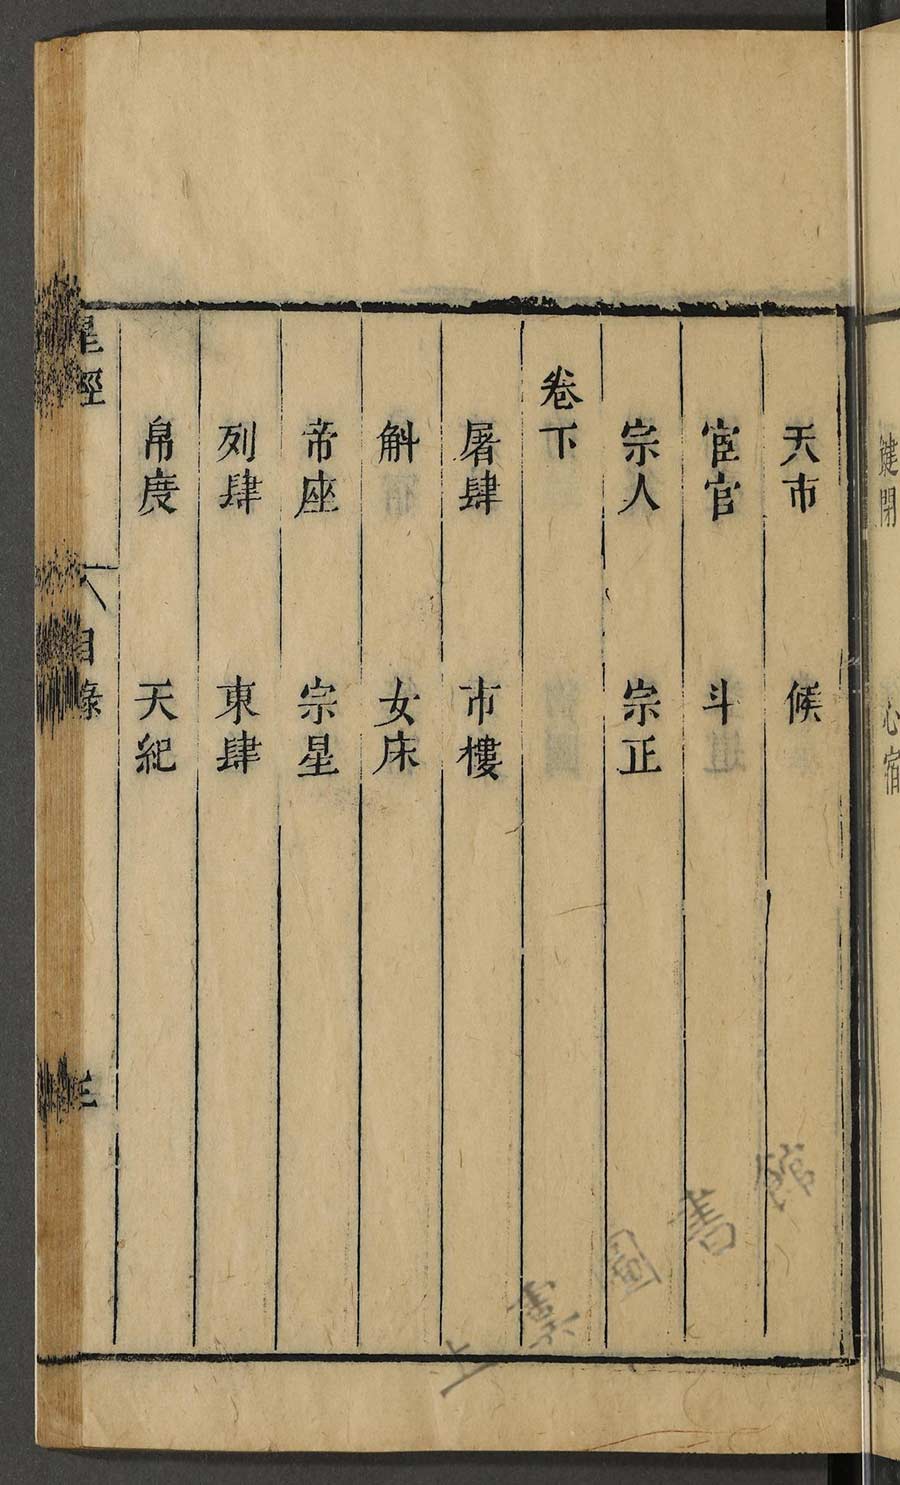 鍵閉　心宿
天市　候
宦官　斗
宗人　宗正
卷下
屠肆　市樓
斛　女床
帝座　宗星
列肆　東肆
帛度　天紀
星經　目錄　三
上虞圖書館